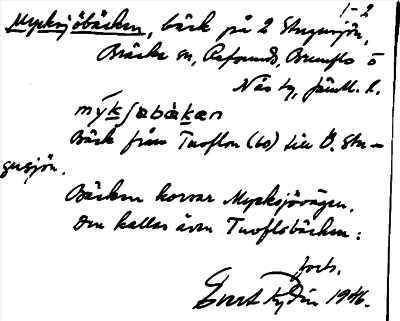 1-2
Mycksjöbäcken, bäck på 2 Stugusjön,
Bräcke sn, Refsunds, Brunflo o
Näs tg, Jämtl. l.
Bäck från Tvoflon (to) till Ö. Stu-
gusjön.
Bäcken korsar Mycksjövägen.
Den kallas även Tvoflobäcken:
forts.
Evert Rydin 1946.